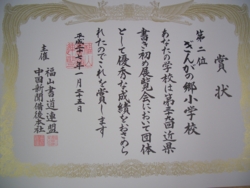 賞状
第二位
ぎんがの郷小学校
あなたの学校は第五十回近県
書き初め展覧会において団体
として優秀な成績をおさめら
れたのでこれを賞します
平成二十七年一月二十五日
主催
福山書道連盟
中国新聞備後本社